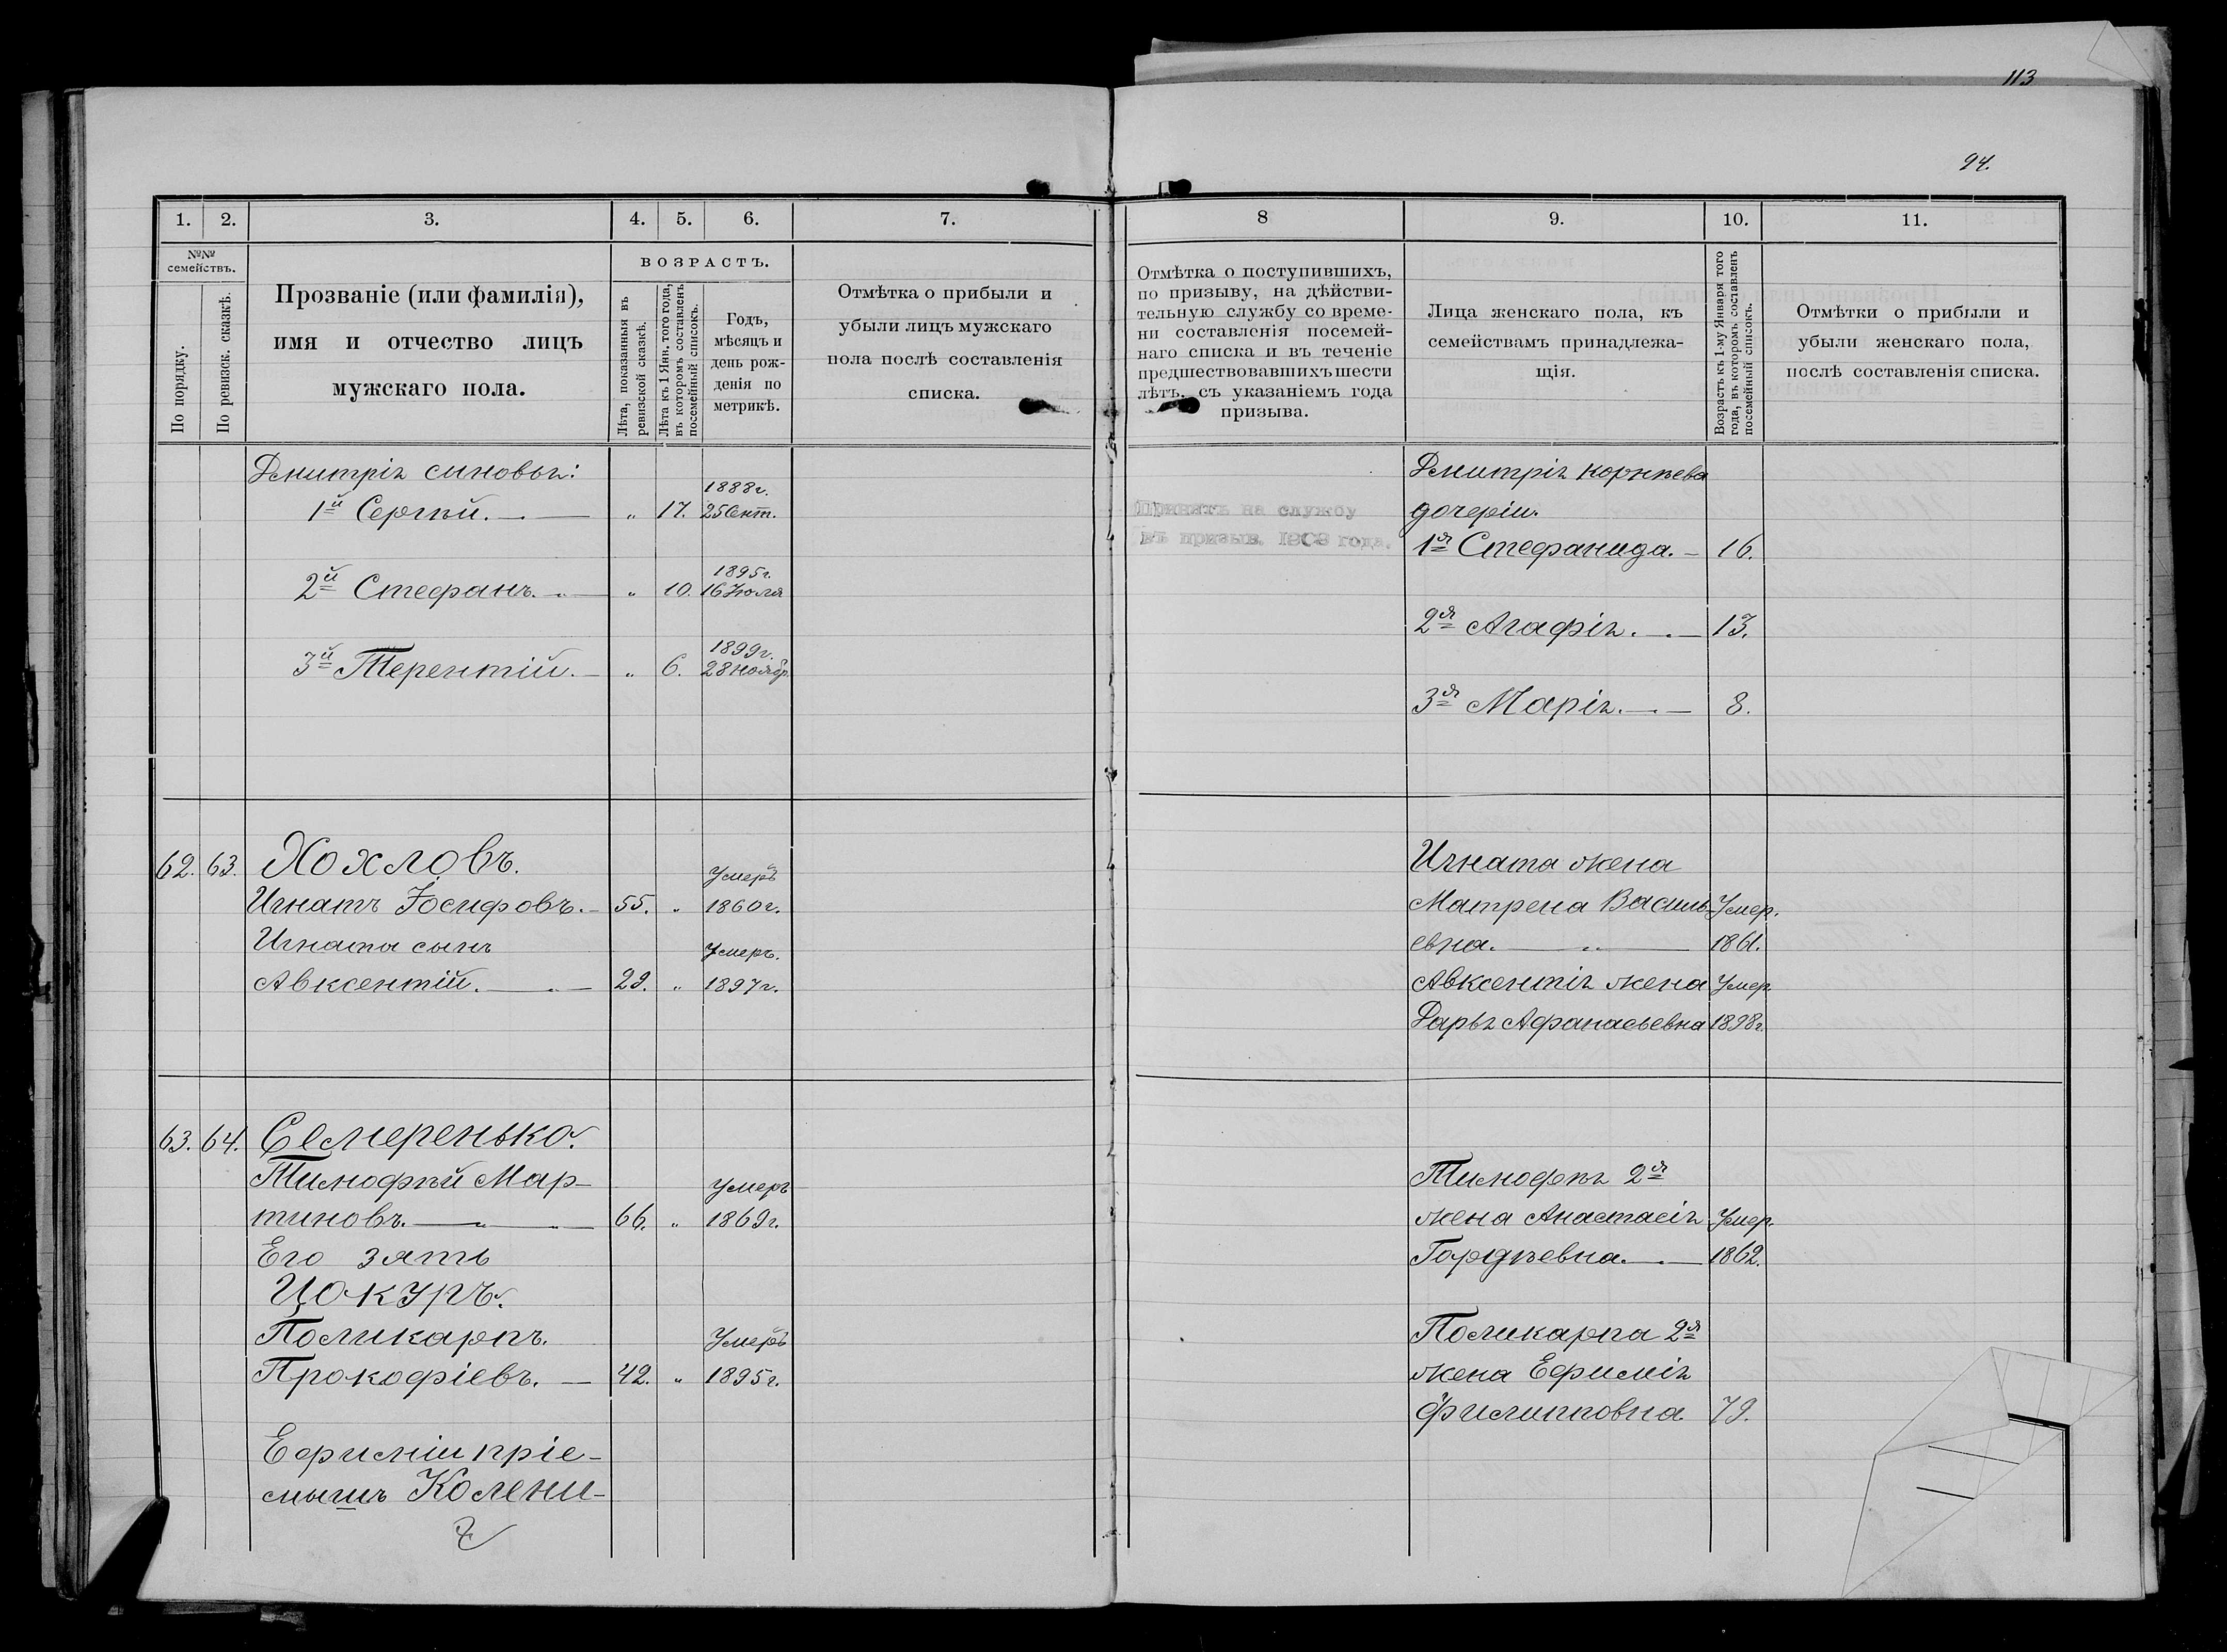 113
94.
1. 2. 3. 4. 5. 6. 7.
№№ семействъ.
По порядку.
По ревизск. сказкѣ.
Прозваніе (или фамилія),
имя и отчество лицъ
мужскаго пола.
ВОЗРАСТЪ.
Лѣта, показанныя въ
ревизской сказкѣ.
Лѣта къ 1 Янв. того года,
въ которомъ составленъ
посемейный списокъ.
Годъ,
мѣсяцъ и
день рож-
денія по
метрикѣ.
Отмѣтка о прибыли и
убыли лицъ мужскаго
пола послѣ составленія
списка.
Дмитрія сыновья:
1й Сергѣй. „ 17. 1888г. 25 Сент.
2й Стефанъ. „ 10. 1895г. 16 Іюля
3й Терентій. „ 6. 1899г. 28 Ноябр.
62. 63. Хохловъ.
Умеръ
Игнатъ Іосифовъ. 55. „ 1860г.
Игната сынъ Умеръ.
Авксентій. 29. „ 1897г.
63. 64. Семеренько.
Тимофѣй Мар-
Умеръ
тиновъ. 66. „ 1869г.
Его зять
Цокуръ.
Поликарпъ. Умеръ
Прокофіевъ. 42. „ 1895г.
Ефиміи пріе-
мышъ Колени-
8 9. 10. 11.
Отмѣтка о поступившихъ,
по призыву, на дѣйстви-
тельную службу со време-
ни составленія посемей-
наго списка и въ теченіе
предшествовавшихъ шести
лѣтъ, съ указаніемъ года
призыва.
Лица женскаго пола, къ
семействамъ принадлежа-
щія.
Возрастъ къ 1-му Января того
года, въ которомъ составленъ
посемейный списокъ.
Отмѣтки о прибыли и
убыли женскаго пола,
послѣ составленія списка.
Принятъ на службу
въ призыв. 1909 года.
Дмитрія Корнѣева
дочеріи.
1я Стефанида. 16.
2я Агафія. 13.
3я Марія. 8.
Игната жена
Матрена Василь- Умер.
евна. 1861.
Авксентія жена Умер.
Дарья Афанасьевна 1898г.
Тимофѣя 2я
жена Анастасія Умер.
Гордѣевна. 1862.
Поликарпа 2я
жена Ефимія
Филипповна 79.